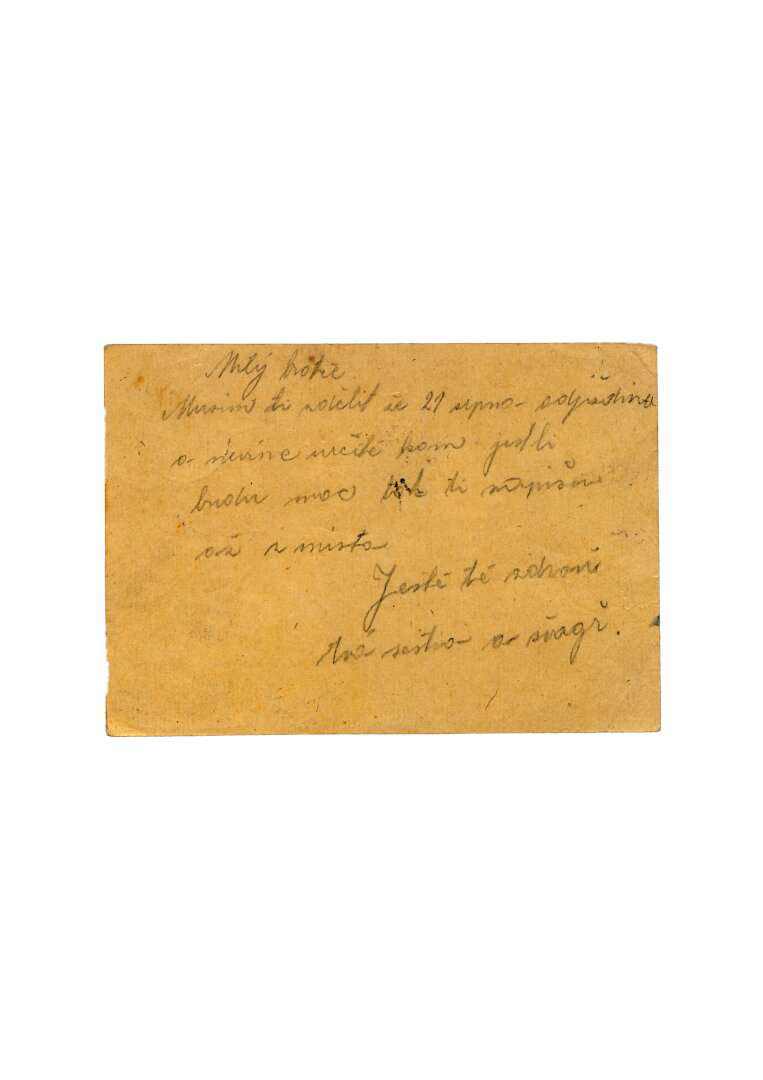 Milý bratře
Musím ti sdělit že 21 srpna odjíždíme
a nevíme určitě kam jestli
budu moc tak ti napíšu
až z místa
Jestě tě zdraví
tvá sestra a švagř.